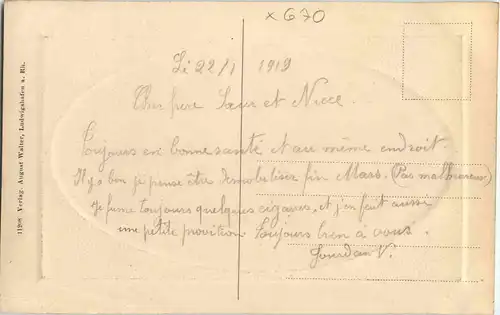 x G70
Le 22/1 1919
Cher frere Sœur et Niece.
Toujours en bonne santé et au même endroit.
Il y a bon je pense être demobilisé fin Mars. (Pas malheureux)
Je fume toujours quelques cigares, et j'en fait aussi
une petite provition Toujours bien à vous.
Jourdan V.
11208 Verlag August Walter, Ludwigshafen a. Rh.